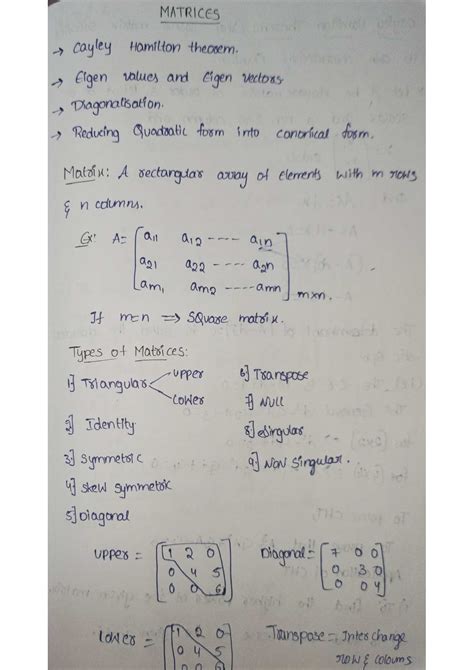 MATRICES
→ Cayley Hamilton theorem.
→ Eigen values and Eigen vectors
→ Diagonalisation.
→ Reducing Quadratic form into canonical form.
Matrix: A rectangular array of elements with m rows
& n columns.
Ex: A= [a11 a12 ---- a1n
a21 a22 ---- a2n
am1 am2 ---- amn] m×n.
If m=n ⟹ Square matrix.
Types of Matrices:
1] Triangular < upper
lower
2] Identity
3] Symmetric
4] Skew symmetric
5] Diagonal
6] Transpose
7] Null
8] Singular
9] Non Singular.
upper = [1 2 0
0 4 5
0 0 6]
Diagonal = [7 0 0
0 3 0
0 0 4]
lower = [1 2 0
0 4 5
Transpose = Interchange
row & coloums